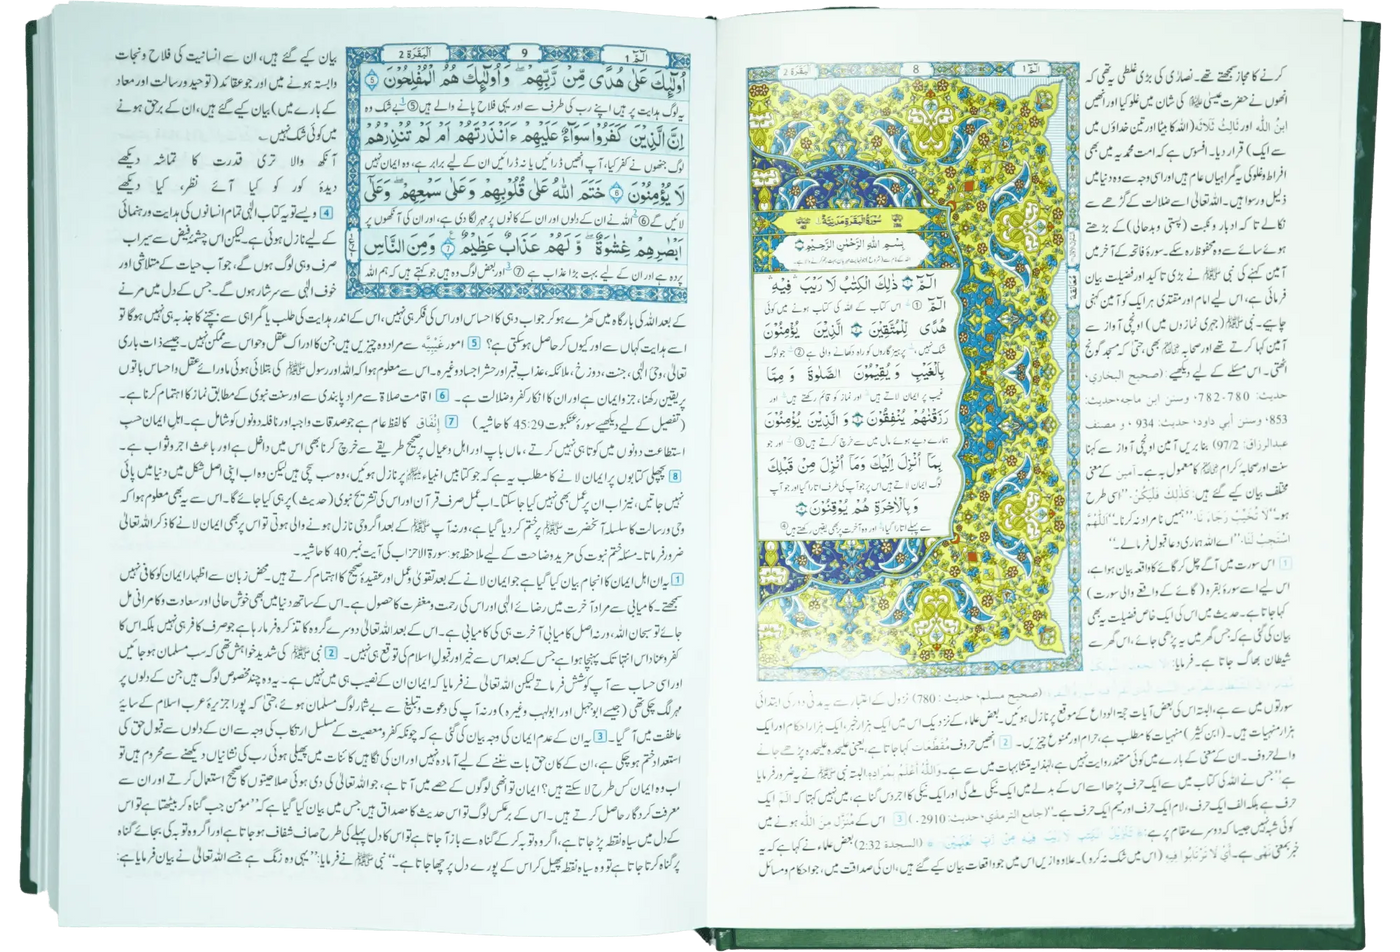 الٓمّٓ ١
8
البقرة 2
کرنے کا مجاز سمجھتے تھے۔ نصاریٰ کی بڑی غلطی یہ تھی کہ
انھوں نے حضرت عیسیٰ ﷺ کی شان میں غلو کیا اور انھیں
ابنُ اللّٰہ اور ثَالِثُ ثَلَاثَۃٍ (اللہ کا بیٹا اور تین خداؤں میں
سے ایک) قرار دیا۔ افسوس ہے کہ امت محمدیہ میں بھی
افراط و غلو کی یہ گمراہیاں عام ہیں اور اسی وجہ سے وہ دنیا میں
ذلیل و رسوا ہیں۔ اللہ تعالیٰ اسے ضلالت کے گڑھے سے
نکالے تاکہ ادبار و نکبت (پستی و بدحالی) کے بڑھتے
ہوئے سائے سے وہ محفوظ رہ سکے۔ سورۂ فاتحہ کے آخر میں
آمین کہنے کی نبی ﷺ نے بڑی تاکید اور فضیلت بیان
فرمائی ہے، اس لیے امام اور مقتدی ہر ایک کو آمین کہنی
چاہیے۔ نبی ﷺ (جہری نمازوں میں) اونچی آواز سے
آمین کہا کرتے تھے اور صحابہ بھی، حتیٰ کہ مسجد گونج
اٹھتی۔ اس مسئلے کے لیے دیکھیے: (صحیح البخاري،
حدیث: 780-782، وسنن ابن ماجہ، حدیث:
853، وسنن أبي داود، حدیث: 934، و مصنف
عبدالرزاق: 97/2) بنا بریں آمین اونچی آواز سے کہنا
سنت اور صحابۂ کرام کا معمول بہ ہے۔ آمین کے معنی
مختلف بیان کیے گئے ہیں: کَذٰلِکَ فَلْیَکُنْ ”اسی طرح
ہو۔“ لَا تُخَیِّبْ رَجَاءَنَا ”ہمیں نامراد نہ کرنا۔“ اَللّٰھُمَّ
اسْتَجِبْ لَنَا ”اے اللہ ہماری دعا قبول فرما لے۔“
1 اس سورت میں آگے چل کر گائے کا واقعہ بیان ہوا ہے،
اس لیے اسے سورۂ بقرہ (گائے کے واقعے والی سورت)
کہا جاتا ہے۔ حدیث میں اس کی ایک خاص فضیلت یہ بھی
بیان کی گئی ہے کہ جس گھر میں یہ پڑھی جائے، اس گھر سے
شیطان بھاگ جاتا ہے۔ فرمایا:
سُوْرَةُ الْبَقَرَةِ مَدَنِيَّةٌ
بِسْمِ اللّٰهِ الرَّحْمٰنِ الرَّحِيْمِ
الٓمّٓ ذٰلِكَ الْكِتٰبُ لَا رَيْبَ فِيْهِ
الٓمّٓ ① اس کتاب کے اللہ کی کتاب ہونے میں کوئی
هُدًى لِّلْمُتَّقِيْنَ الَّذِيْنَ يُؤْمِنُوْنَ
شک نہیں، پرہیزگاروں کو راہ دکھانے والی ہے ② جو لوگ
بِالْغَيْبِ وَ يُقِيْمُوْنَ الصَّلٰوةَ وَ مِمَّا
غیب پر ایمان لاتے ہیں اور نماز کو قائم رکھتے ہیں اور
رَزَقْنٰهُمْ يُنْفِقُوْنَ وَ الَّذِيْنَ يُؤْمِنُوْنَ
ہمارے دیے ہوئے مال میں سے خرچ کرتے ہیں ③ اور جو
بِمَآ اُنْزِلَ اِلَيْكَ وَمَآ اُنْزِلَ مِنْ قَبْلِكَ
لوگ ایمان لاتے ہیں اس پر جو آپ کی طرف اتارا گیا اور جو آپ
وَبِالْاٰخِرَةِ هُمْ يُوْقِنُوْنَ
سے پہلے اتارا گیا، اور وہ آخرت پر بھی یقین رکھتے ہیں ④
(صحیح مسلم، حدیث: 780) نزول کے اعتبار سے یہ مدنی دور کی ابتدائی
سورتوں میں سے ہے، البتہ اس کی بعض آیات حجۃ الوداع کے موقع پر نازل ہوئیں۔ بعض علماء کے نزدیک اس میں ایک ہزار خبر، ایک ہزار احکام اور ایک
ہزار منہیات ہیں۔ (ابن کثیر) منہیات کا مطلب ہے، حرام اور ممنوع چیزیں۔ 2 انھیں حروف مُقَطَّعَات کہا جاتا ہے، یعنی علیحدہ علیحدہ پڑھے جانے
والے حروف۔ ان کے معنی کے بارے میں کوئی مستند روایت نہیں ہے، لہٰذا یہ متشابہات میں سے ہے۔ وَاللّٰهُ أَعْلَمُ بِمُرَادِهٖ البتہ نبی ﷺ نے یہ ضرور فرمایا
ہے: ”جس نے اللہ کی کتاب میں سے ایک حرف پڑھا اسے اس کے بدلے میں ایک نیکی ملے گی اور ایک نیکی کا اجر دس گنا ہے، میں نہیں کہتا کہ الٓمّٓ ایک
حرف ہے بلکہ الف ایک حرف، لام ایک حرف اور میم ایک حرف ہے۔“ (جامع الترمذي، حدیث: 2910) 3 اس کے مُنَزَّل مِنَ اللّٰہ ہونے میں
کوئی شبہ نہیں جیسا کہ دوسرے مقام پر ہے: تَنْزِيْلُ الْكِتٰبِ لَا رَيْبَ فِيْهِ مِنْ رَّبِّ الْعٰلَمِيْنَ (السجدۃ 2:32) بعض علماء نے کہا ہے کہ یہ
خبر بمعنی نہی ہے۔ أَيْ لَا تَرْتَابُوا فِيهِ (اس میں شک نہ کرو)۔ علاوہ ازیں اس میں جو واقعات بیان کیے گئے ہیں، ان کی صداقت میں، جو احکام و مسائل
الٓمّٓ ١
9
البقرة 2
اُولٰٓئِكَ عَلٰى هُدًى مِّنْ رَّبِّهِمْ وَ اُولٰٓئِكَ هُمُ الْمُفْلِحُوْنَ ⑤
یہ لوگ ہدایت پر ہیں اپنے رب کی طرف سے اور یہی فلاح پانے والے ہیں ⑤ بے شک وہ
اِنَّ الَّذِيْنَ كَفَرُوْا سَوَآءٌ عَلَيْهِمْ ءَاَنْذَرْتَهُمْ اَمْ لَمْ تُنْذِرْهُمْ
لوگ جنھوں نے کفر کیا، آپ انھیں ڈرائیں یا نہ ڈرائیں ان کے لیے برابر ہے، وہ ایمان نہیں
لَا يُؤْمِنُوْنَ ⑥ خَتَمَ اللّٰهُ عَلٰى قُلُوْبِهِمْ وَعَلٰى سَمْعِهِمْ وَعَلٰٓى
لائیں گے ⑥ اللہ نے ان کے دلوں اور ان کے کانوں پر مہر لگا دی ہے، اور ان کی آنکھوں پر
اَبْصَارِهِمْ غِشَاوَةٌ وَّ لَهُمْ عَذَابٌ عَظِيْمٌ وَمِنَ النَّاسِ
پردہ ہے اور ان کے لیے بہت بڑا عذاب ہے ⑦ اور بعض لوگ وہ ہیں جو کہتے ہیں کہ ہم اللہ
بیان کیے گئے ہیں، ان سے انسانیت کی فلاح و نجات
وابستہ ہونے میں اور جو عقائد (توحید و رسالت اور معاد
کے بارے میں) بیان کیے گئے ہیں، ان کے برحق ہونے
میں کوئی شک نہیں۔
آنکھ والا تری قدرت کا تماشہ دیکھے
دیدۂ کور کو کیا آئے نظر، کیا دیکھے
4 ویسے تو یہ کتاب الٰہی تمام انسانوں کی ہدایت و رہنمائی
کے لیے نازل ہوئی ہے۔ لیکن اس چشمۂ فیض سے سیراب
صرف وہی لوگ ہوں گے، جو آب حیات کے متلاشی اور
خوف الٰہی سے سرشار ہوں گے۔ جس کے دل میں مرنے
کے بعد اللہ کی بارگاہ میں کھڑے ہو کر جواب دہی کا احساس اور اس کی فکر ہی نہیں، اس کے اندر ہدایت کی طلب یا گمراہی سے بچنے کا جذبہ ہی نہیں ہوگا تو
اسے ہدایت کہاں سے اور کیوں کر حاصل ہو سکتی ہے؟ 5 امور غَیْبِیَّہ سے مراد وہ چیزیں ہیں جن کا ادراک عقل و حواس سے ممکن نہیں۔ جیسے ذات باری
تعالیٰ، وحی الٰہی، جنت، دوزخ، ملائکہ، عذاب قبر اور حشر اجساد وغیرہ۔ اس سے معلوم ہوا کہ اللہ اور رسول ﷺ کی بتلائی ہوئی ماورائے عقل و احساس باتوں
پر یقین رکھنا، جزو ایمان ہے اور ان کا انکار کفر و ضلالت ہے۔ 6 اقامت صلاۃ سے مراد پابندی سے اور سنت نبوی کے مطابق نماز کا اہتمام کرنا ہے۔
(تفصیل کے لیے دیکھیے سورۂ عنکبوت 45:29 کا حاشیہ) 7 إِنْفَاق کا لفظ عام ہے جو صدقات واجبہ اور نافلہ دونوں کو شامل ہے۔ اہل ایمان حسب
استطاعت دونوں میں کوتاہی نہیں کرتے، ماں باپ اور اہل و عیال پر صحیح طریقے سے خرچ کرنا بھی اس میں داخل ہے اور باعث اجر و ثواب ہے۔
8 پچھلی کتابوں پر ایمان لانے کا مطلب یہ ہے کہ جو کتابیں انبیاء پر نازل ہوئیں، وہ سب سچی ہیں لیکن وہ اب اپنی اصل شکل میں دنیا میں پائی
نہیں جاتیں، نیز اب ان پر عمل بھی نہیں کیا جا سکتا۔ اب عمل صرف قرآن اور اس کی تشریح نبوی (حدیث) پر ہی کیا جائے گا۔ اس سے یہ بھی معلوم ہوا کہ
وحی و رسالت کا سلسلہ آنحضرت ﷺ پر ختم کر دیا گیا ہے، ورنہ آپ ﷺ کے بعد اگر وحی نازل ہونے والی ہوتی تو اس پر بھی ایمان لانے کا ذکر اللہ تعالیٰ
ضرور فرماتا۔ مسئلہ ختم نبوت کی مزید وضاحت کے لیے ملاحظہ ہو: سورۃ الاحزاب کی آیت نمبر 40 کا حاشیہ۔
1 یہ ان اہل ایمان کا انجام بیان کیا گیا ہے جو ایمان لانے کے بعد تقویٰ و عمل اور عقیدۂ صحیحہ کا اہتمام کرتے ہیں۔ محض زبان سے اظہار ایمان کو کافی نہیں
سمجھتے۔ کامیابی سے مراد آخرت میں رضائے الٰہی اور اس کی رحمت و مغفرت کا حصول ہے۔ اس کے ساتھ دنیا میں بھی خوش حالی اور سعادت و کامرانی مل
جائے تو سبحان اللہ، ورنہ اصل کامیابی آخرت ہی کی کامیابی ہے۔ اس کے بعد اللہ تعالیٰ دوسرے گروہ کا تذکرہ فرما رہا ہے جو صرف کافر ہی نہیں بلکہ اس کا
کفر و عناد اس انتہا تک پہنچا ہوا ہے جس کے بعد اس سے خیر اور قبول اسلام کی توقع ہی نہیں۔ 2 نبی ﷺ کی شدید خواہش تھی کہ سب مسلمان ہو جائیں
اور اسی حساب سے آپ کوشش فرماتے لیکن اللہ تعالیٰ نے فرمایا کہ ایمان ان کے نصیب ہی میں نہیں ہے۔ یہ وہ چند مخصوص لوگ ہیں جن کے دلوں پر
مہر لگ چکی تھی (جیسے ابوجہل اور ابولہب وغیرہ) ورنہ آپ کی دعوت و تبلیغ سے بے شمار لوگ مسلمان ہوئے، حتیٰ کہ پورا جزیرۂ عرب اسلام کے سایۂ
عاطفت میں آگیا۔ 3 یہ ان کے عدم ایمان کی وجہ بیان کی گئی ہے کہ چونکہ کفر و معصیت کے مسلسل ارتکاب کی وجہ سے ان کے دلوں سے قبول حق کی
استعداد ختم ہو چکی ہے، ان کے کان حق بات سننے کے لیے آمادہ نہیں اور ان کی نگاہیں کائنات میں پھیلی ہوئی رب کی نشانیاں دیکھنے سے محروم ہیں تو
اب وہ ایمان کس طرح لا سکتے ہیں؟ ایمان تو انھی لوگوں کے حصے میں آتا ہے، جو اللہ تعالیٰ کی دی ہوئی صلاحیتوں کا صحیح استعمال کرتے اور ان سے
معرفت کردگار حاصل کرتے ہیں۔ اس کے برعکس لوگ تو اس حدیث کا مصداق ہیں جس میں بیان کیا گیا ہے کہ ”مومن جب گناہ کر بیٹھتا ہے تو اس
کے دل میں سیاہ نقطہ پڑ جاتا ہے، اگر وہ توبہ کر کے گناہ سے باز آ جاتا ہے تو اس کا دل پہلے کی طرح صاف شفاف ہو جاتا ہے اور اگر وہ توبہ کی بجائے گناہ
پر گناہ کرتا جاتا ہے تو وہ سیاہ نقطہ پھیل کر اس کے پورے دل پر چھا جاتا ہے۔“ نبی ﷺ نے فرمایا: ”یہی وہ زنگ ہے جسے اللہ تعالیٰ نے بیان فرمایا ہے: